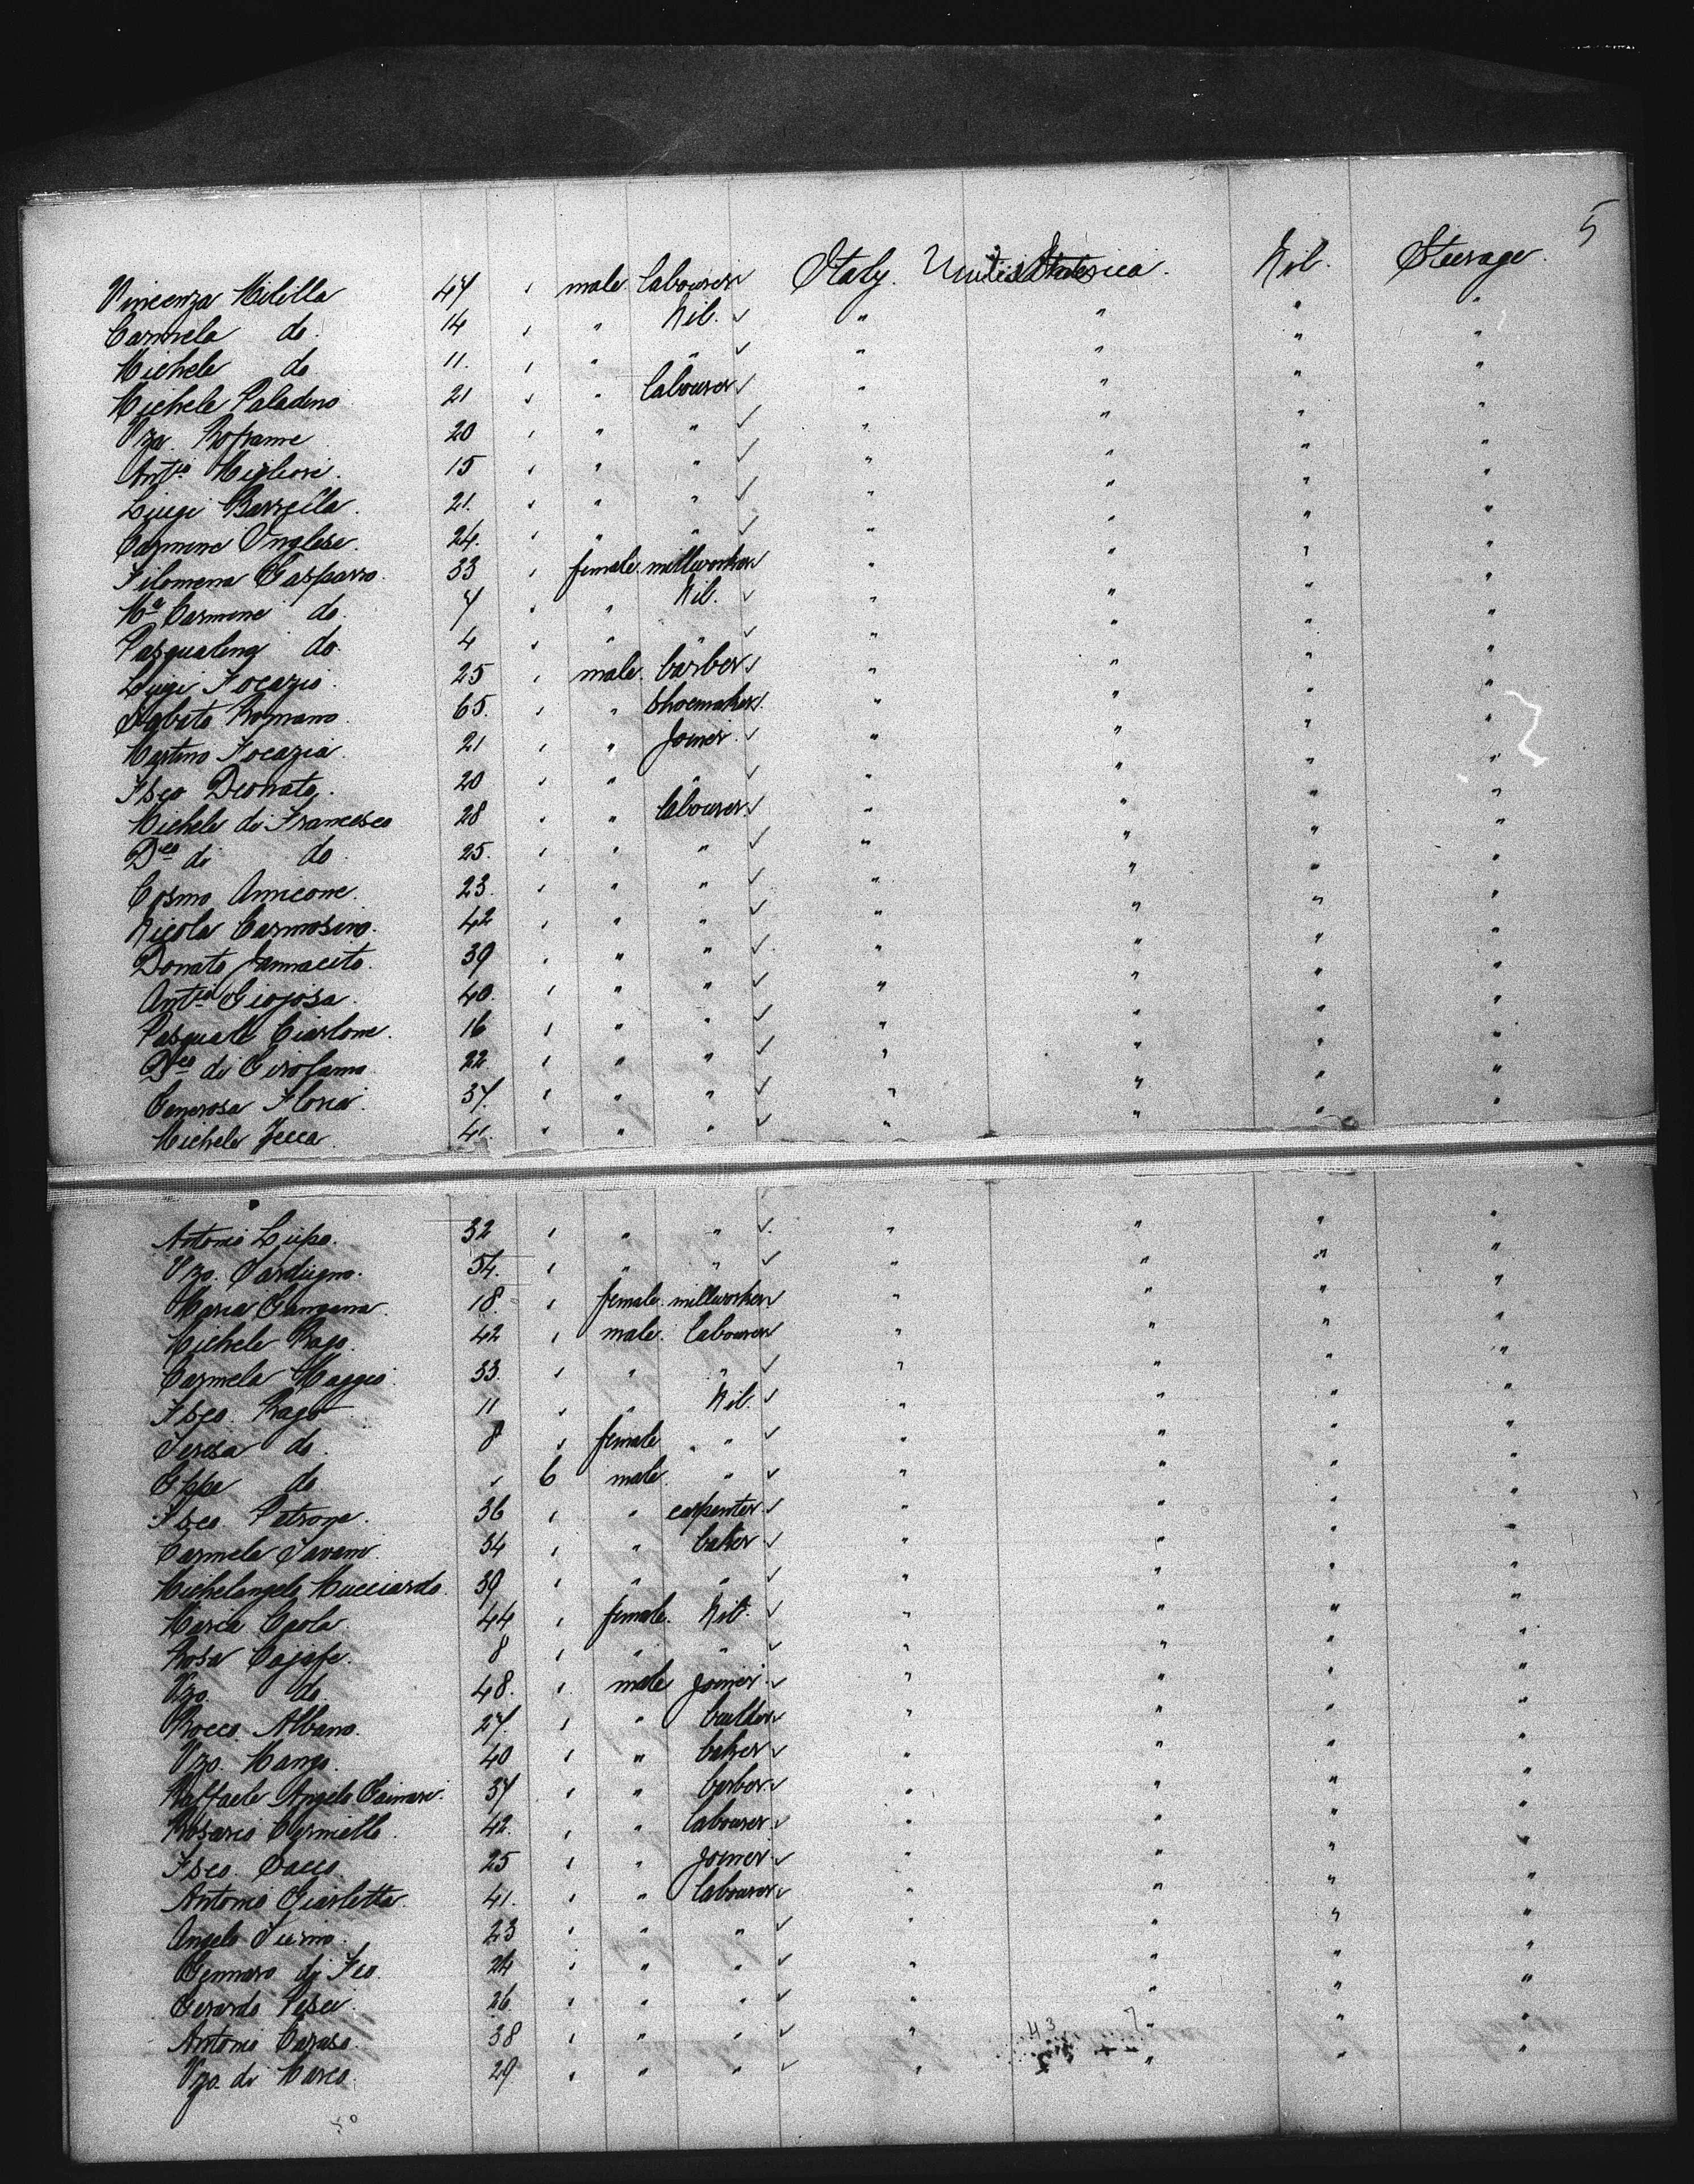 5
Vincenza Melilla 47 " male labourer Italy. United States America. Nil. Steerage.
Carmela do. 14 " " Nil. " " " "
Michele do 11. " " " " " " "
Michele Paladino 21 " " labourer " " " "
Vza. 20 " " " " " " "
Antio Migliori. 15 " " " " " " "
Luigi 21. " " " " " " "
Carmine Inglese. 24. " " " " " " "
Filomena Gasparro. 33 " female. millworker " " " "
Ma Carmine do. 7 " " Nil. " " " "
Pasqualina do. 4 " " " " " " "
Luigi Focazio. 25 " male. barber " " " "
Agbato Romano. 65. " " Shoemaker. " " " "
Martino Focazia. 21 " " Joiner. " " " "
Fsco Deonato. 20 " " " " " " "
Michele di Francesco 28 " " labourer. " " " "
Dco di do 25. " " " " " " "
Cosmo Amicone. 23. " " " " " " "
Nicola Carmosino. 42 " " " " " " "
Donato Jannaceto. 39 " " " " " " "
Antio Giojosa. 40. " " " " " " "
Pasquale Ciarlone. 16 " " " " " " "
Dco di Girolamo 22 " " " " " " "
Generosa Floria. 37. " " " " " " "
Michele Jecca. 41. " " " " " " "
Antonio Lupo. 32 " " " " " " "
Vzo. Sardugno. 54. " " " " " " "
Maria 18. " female. millworker " " " "
Michele Rago. 42 " male. labourer " " " "
Carmela Maggio. 33. " " " " " " "
Fsco. Rago 11 " " Nil. " " " "
Teresa do. 8 " female " " " " "
Gppe do " 6 male. " " " " "
Fsco. Petrone. 36 " " carpenter. " " " "
Carmela Savano. 34 " " baker " " " "
Michelangelo Mucciardo. 39 " " " " " " "
Maria 44 " female. Nil. " " " "
Rosa 8 " " " " " " "
Vzo. do. 48. " male Joiner. " " " "
Rocco Albano. 27. " " " " " "
Vzo. Mango. 40 " " baker " " " "
Raffaele Angelo 37 " " barber. " " " "
Rosario 42. " " labourer. " " " "
Fsco. Sacco. 25 " " Joiner. " " " "
Antonio Giarletta. 41. " " labourer. " " " "
Angelo 23 " " " " " " "
Gennaro di Feo. 24 " " " " " " "
Gerardo Pesce. 26. " " " " " " "
Antonio Caruso. 38 " " " " " " "
Vzo. di Marco. 29 " " " " " " "
50